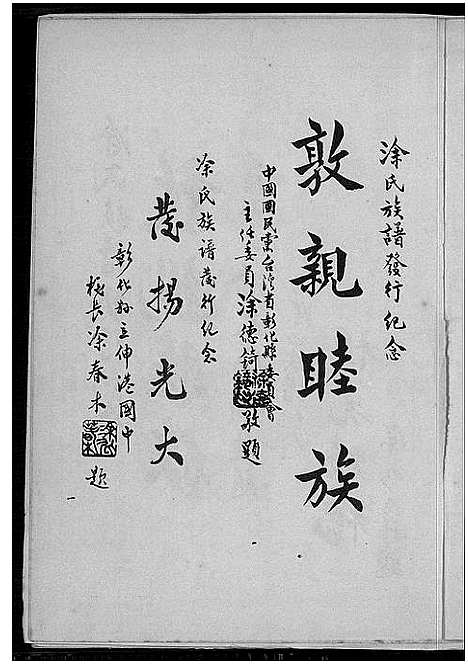 涂氏族譜發行紀念
敦親睦族
中國國民党台湾省彰化縣委員會
主任委員涂德錡
敬題
涂氏族譜發行紀念
發揚光大
彰化縣立伸港國中
校長涂春木
題